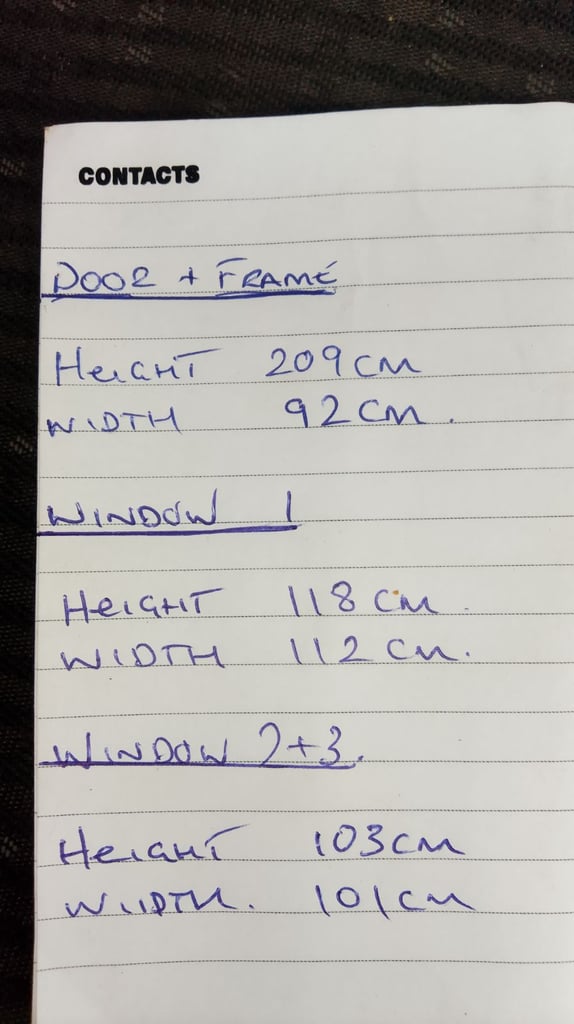 CONTACTS
DOOR + FRAME
HEIGHT 209 CM
WIDTH 92 CM.
WINDOW 1
HEIGHT 118 CM.
WIDTH 112 CM.
WINDOW 2+3.
HEIGHT 103 CM
WIDTH. 101 CM